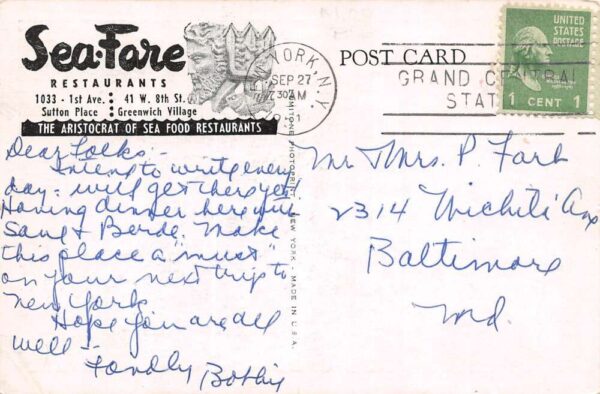 Sea-Fare
RESTAURANTS
1033 - 1st Ave. : 41 W. 8th St.
Sutton Place : Greenwich Village
THE ARISTOCRAT OF SEA FOOD RESTAURANTS
POST CARD
NEW YORK, N.Y.
SEP 27
730 AM
GRAND CENTRAL
STAT
UNITED
STATES
POSTAGE
1 CENT 1
MADE IN U.S.A.
NEW YORK
Dear Folks -
Intend to write every
day - will get there yet!
Having dinner here with
& Berde. Make
this place a "must"
on your next trip to
New York
Hope you are all
well -
Fondly Bobby
Mr Mrs. P. Farb
2314 Wichita Ave
Baltimore
Md.